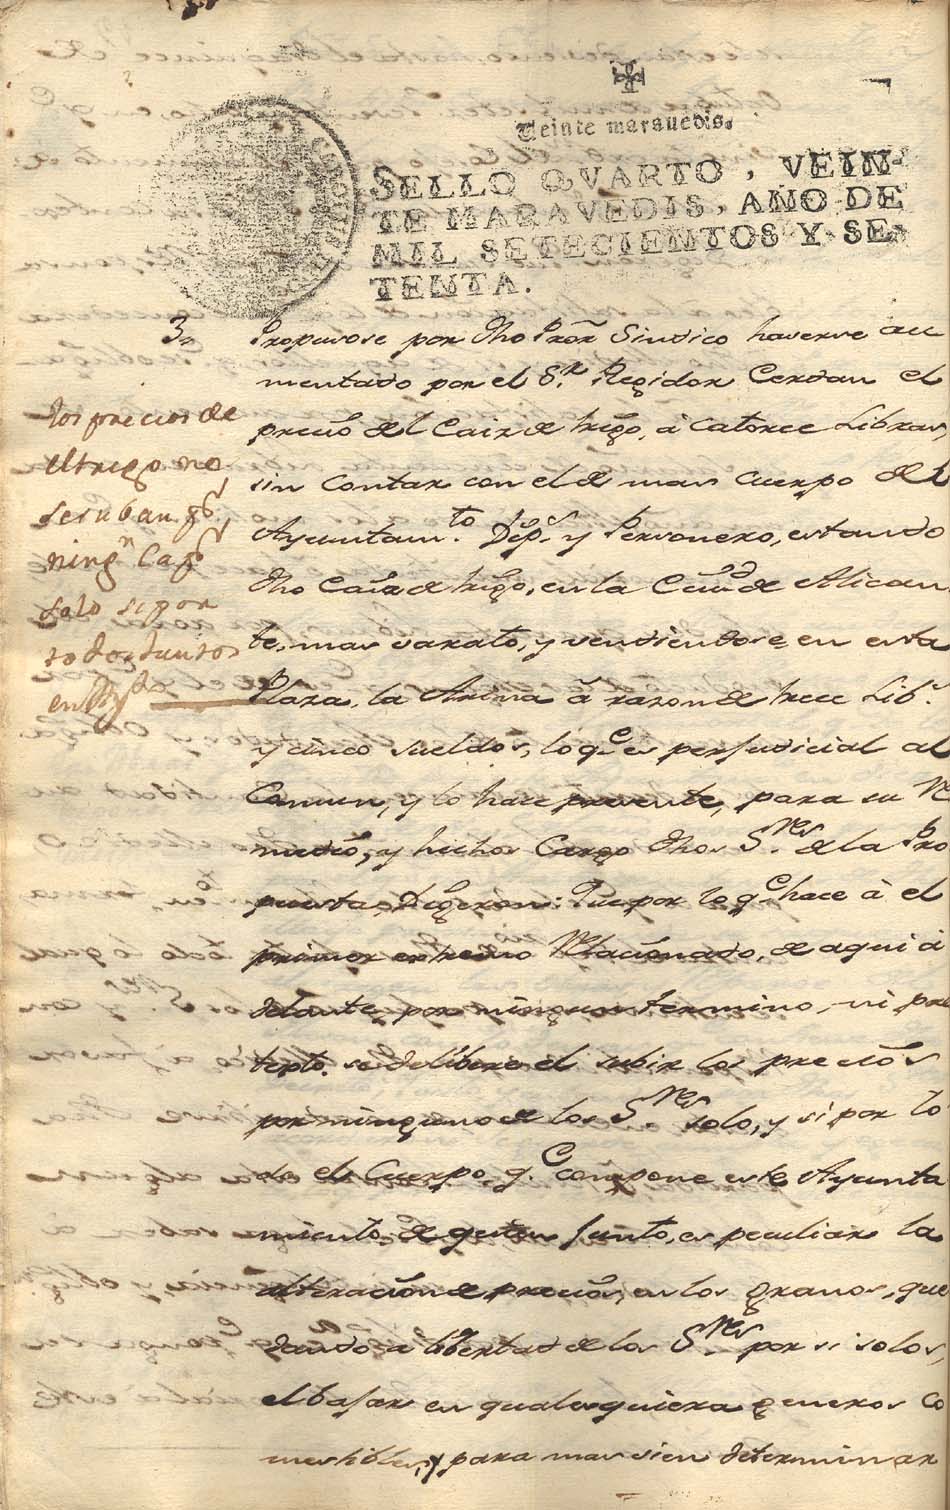 Veinte marauedis.
SELLO QVARTO, VEIN-
TE MARAVEDIS, AÑO DE
MIL SETECIENTOS Y SE-
TENTA.
CAROLUS
3.
Propusose por dho Pror Sindico haverse au
mentado por el Sr. Regidor Cerdan el
precio del Caiz de trigo, à Catorce Libras,
sin Contar con el de mas Cuerpo del
Ayuntamto. Dips. y Personero, estando
dho Caiz de trigo, en la Ciud de Alican
te, mas varato, y vendiendose en esta
Plaza, la Arina à razon de trece Lib.s
y cinco sueldos, lo qe es perjudicial al
Comun, y lo hace presente, para su Re
medio, y hechos Cargo dhos Sres. de la Pro
puesta, Digeron: Que por lo qe hace à el
primer extremo Relacionado, de aqui à
delante, por ningun termino, ni pre
texto, se delibere el subir los precios
por ninguno de los Sres. solo, y si por to
do el Cuerpo, qe compone este Ayunta
miento, de quien Junto, es peculiar la
alteracion de precios, en los granos, que
dando à libertad de los Sres. por si solos,
el bajar en qualesquiera generos Co
mestibles, y para mas bien determinar
los precios de
el trigo no
se suban pr
ningn Capr
solo si por
todos Juntos
en Aytto